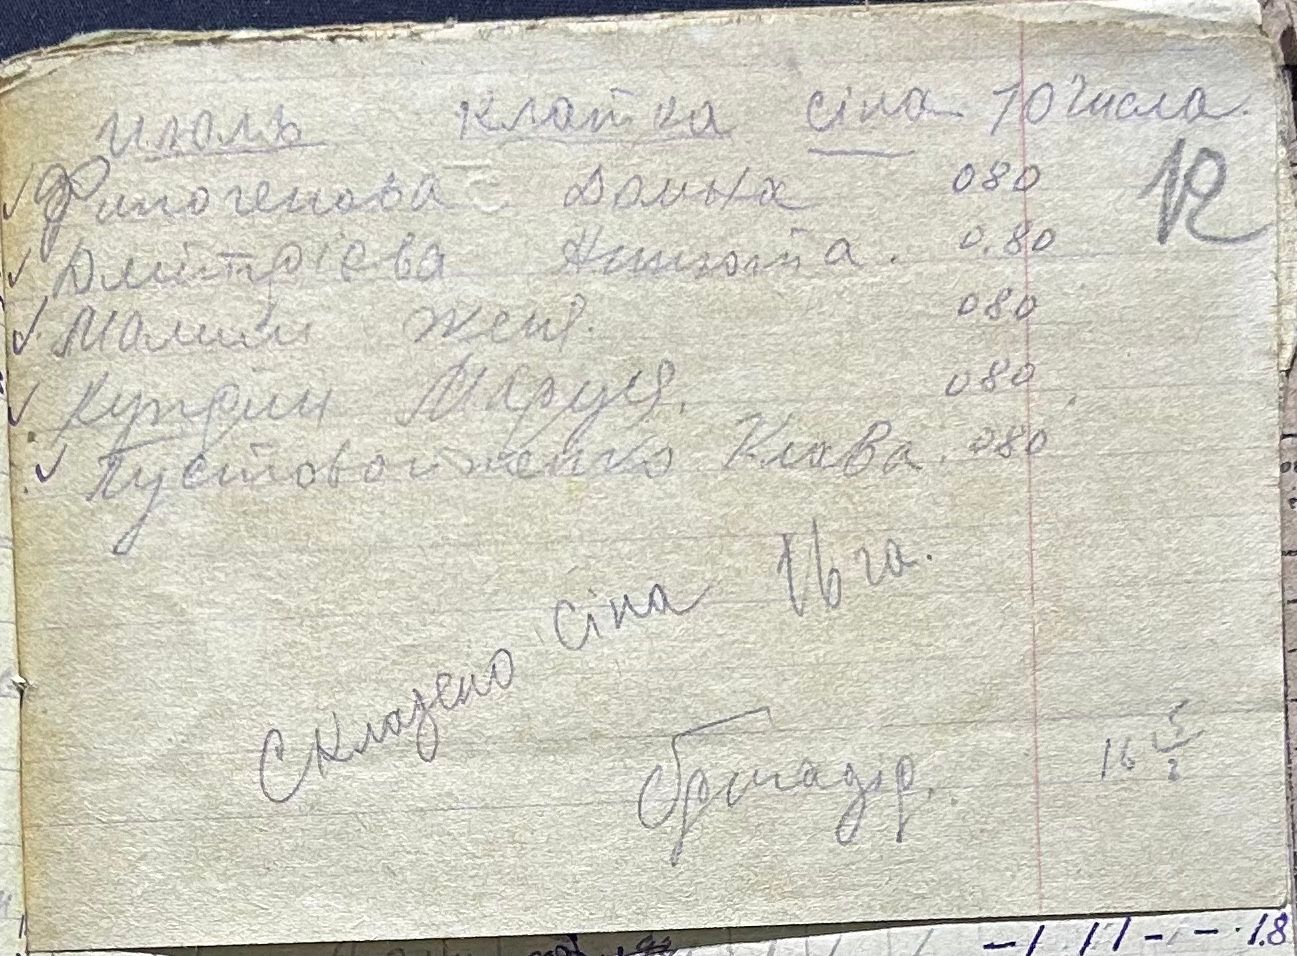 Июль клатка сіна 10 числа.
12
Финогенова Домна 080
Дмітрієва Анюта. 0.80
Малий Женя. 080
Куприн Маруся. 080
Пустовойтенко Клава. 080
Складено сіна 16 га.
бригадір.
16
-1.8